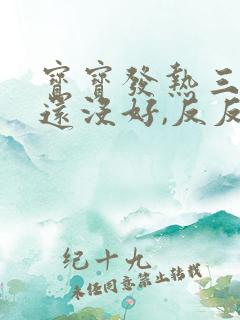 寶寶發熱三
還沒好,反反
纪十九
未经同意禁止转载